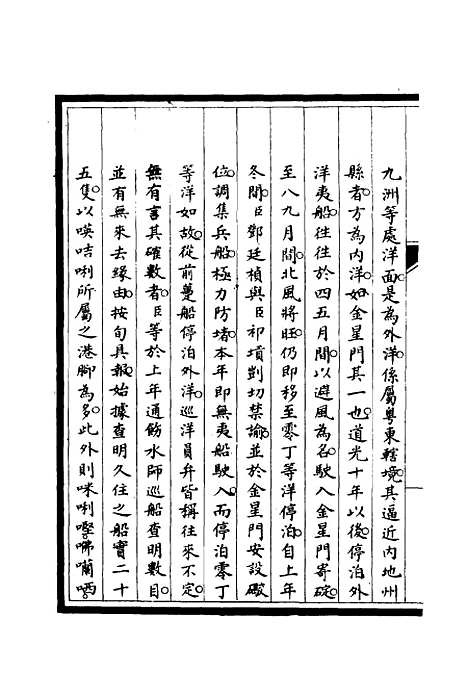 九洲等處洋面是為外洋係屬粵東轄境其逼近內地州
縣者方為內洋如金星門其一也道光十年以後停泊外
洋夷船往往於四五月間以避風為名駛入金星門寄碇
至八九月間北風將旺仍即移至零丁等洋停泊自上年
冬間臣鄧廷楨與臣祁𡎴剴切禁諭並於金星門安設礮
位調集兵船極力防堵本年即無夷船駛入而停泊零丁
等洋如故從前躉船停泊外洋巡洋員弁皆稱往來不定
無有言其確數者臣等於上年通飭水師巡船查明數目
並有無來去緣由按旬具報始據查明久住之船實二十
五隻以㗸咭唎所屬之港腳為多此外則咪唎㗰咈囒哂